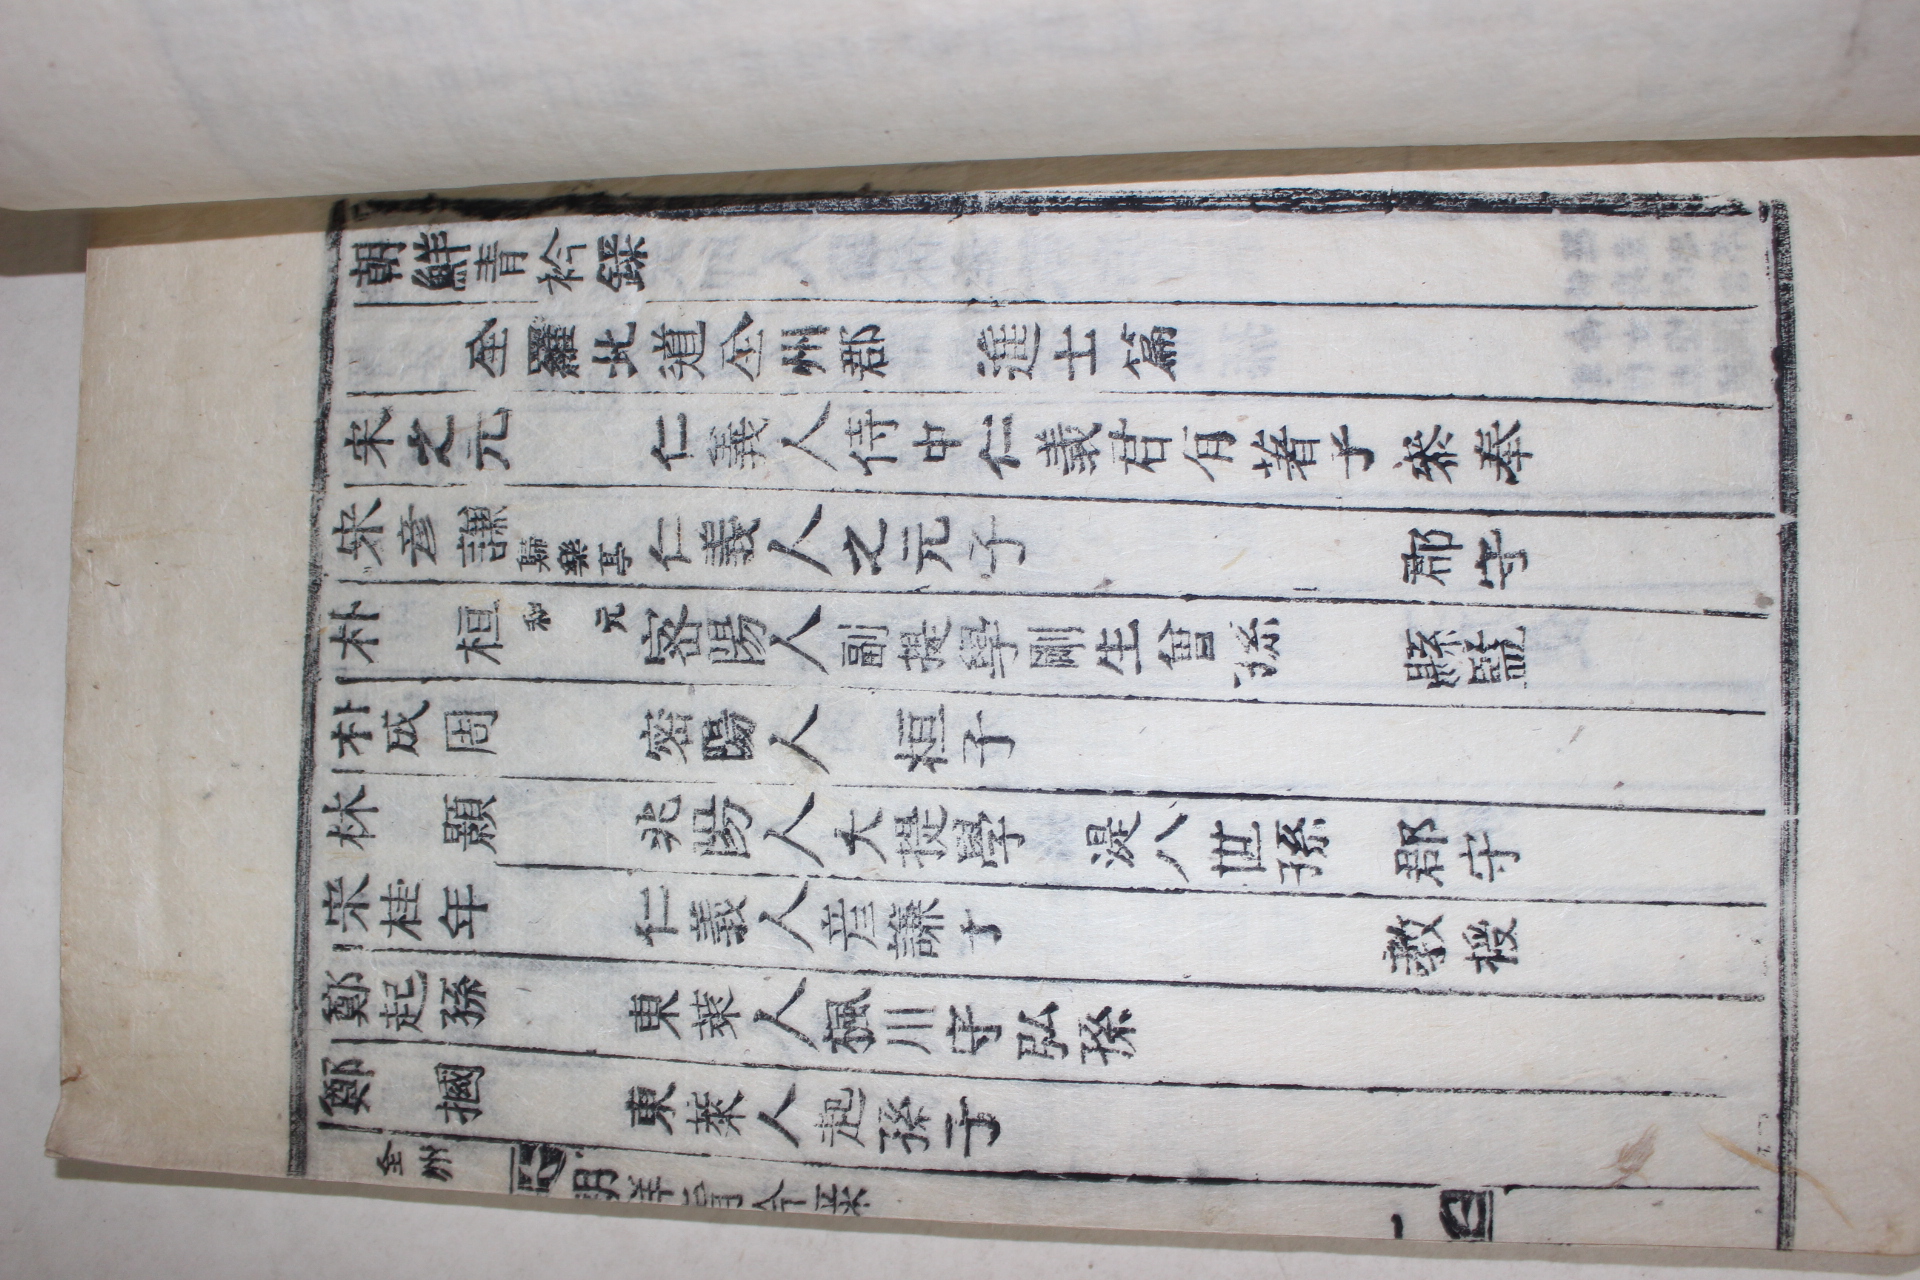 朝鮮青衿錄
全羅北道全州郡 進士篇
宋之元 仁義人侍中仁義君有著子 叅奉
宋彦謙 歸樂亭 仁義人之元子 郡守
朴 桓 和元 密陽人副提學剛生曾孫 縣監
朴成周 密陽人 桓子
林 顥 兆陽人大提學 湜八世孫 郡守
宋桂年 仁義人彦謙子 教授
鄭起孫 東萊人楓川守弘孫
鄭 摑 東萊人起孫子
全州 朝鮮青衿錄 一